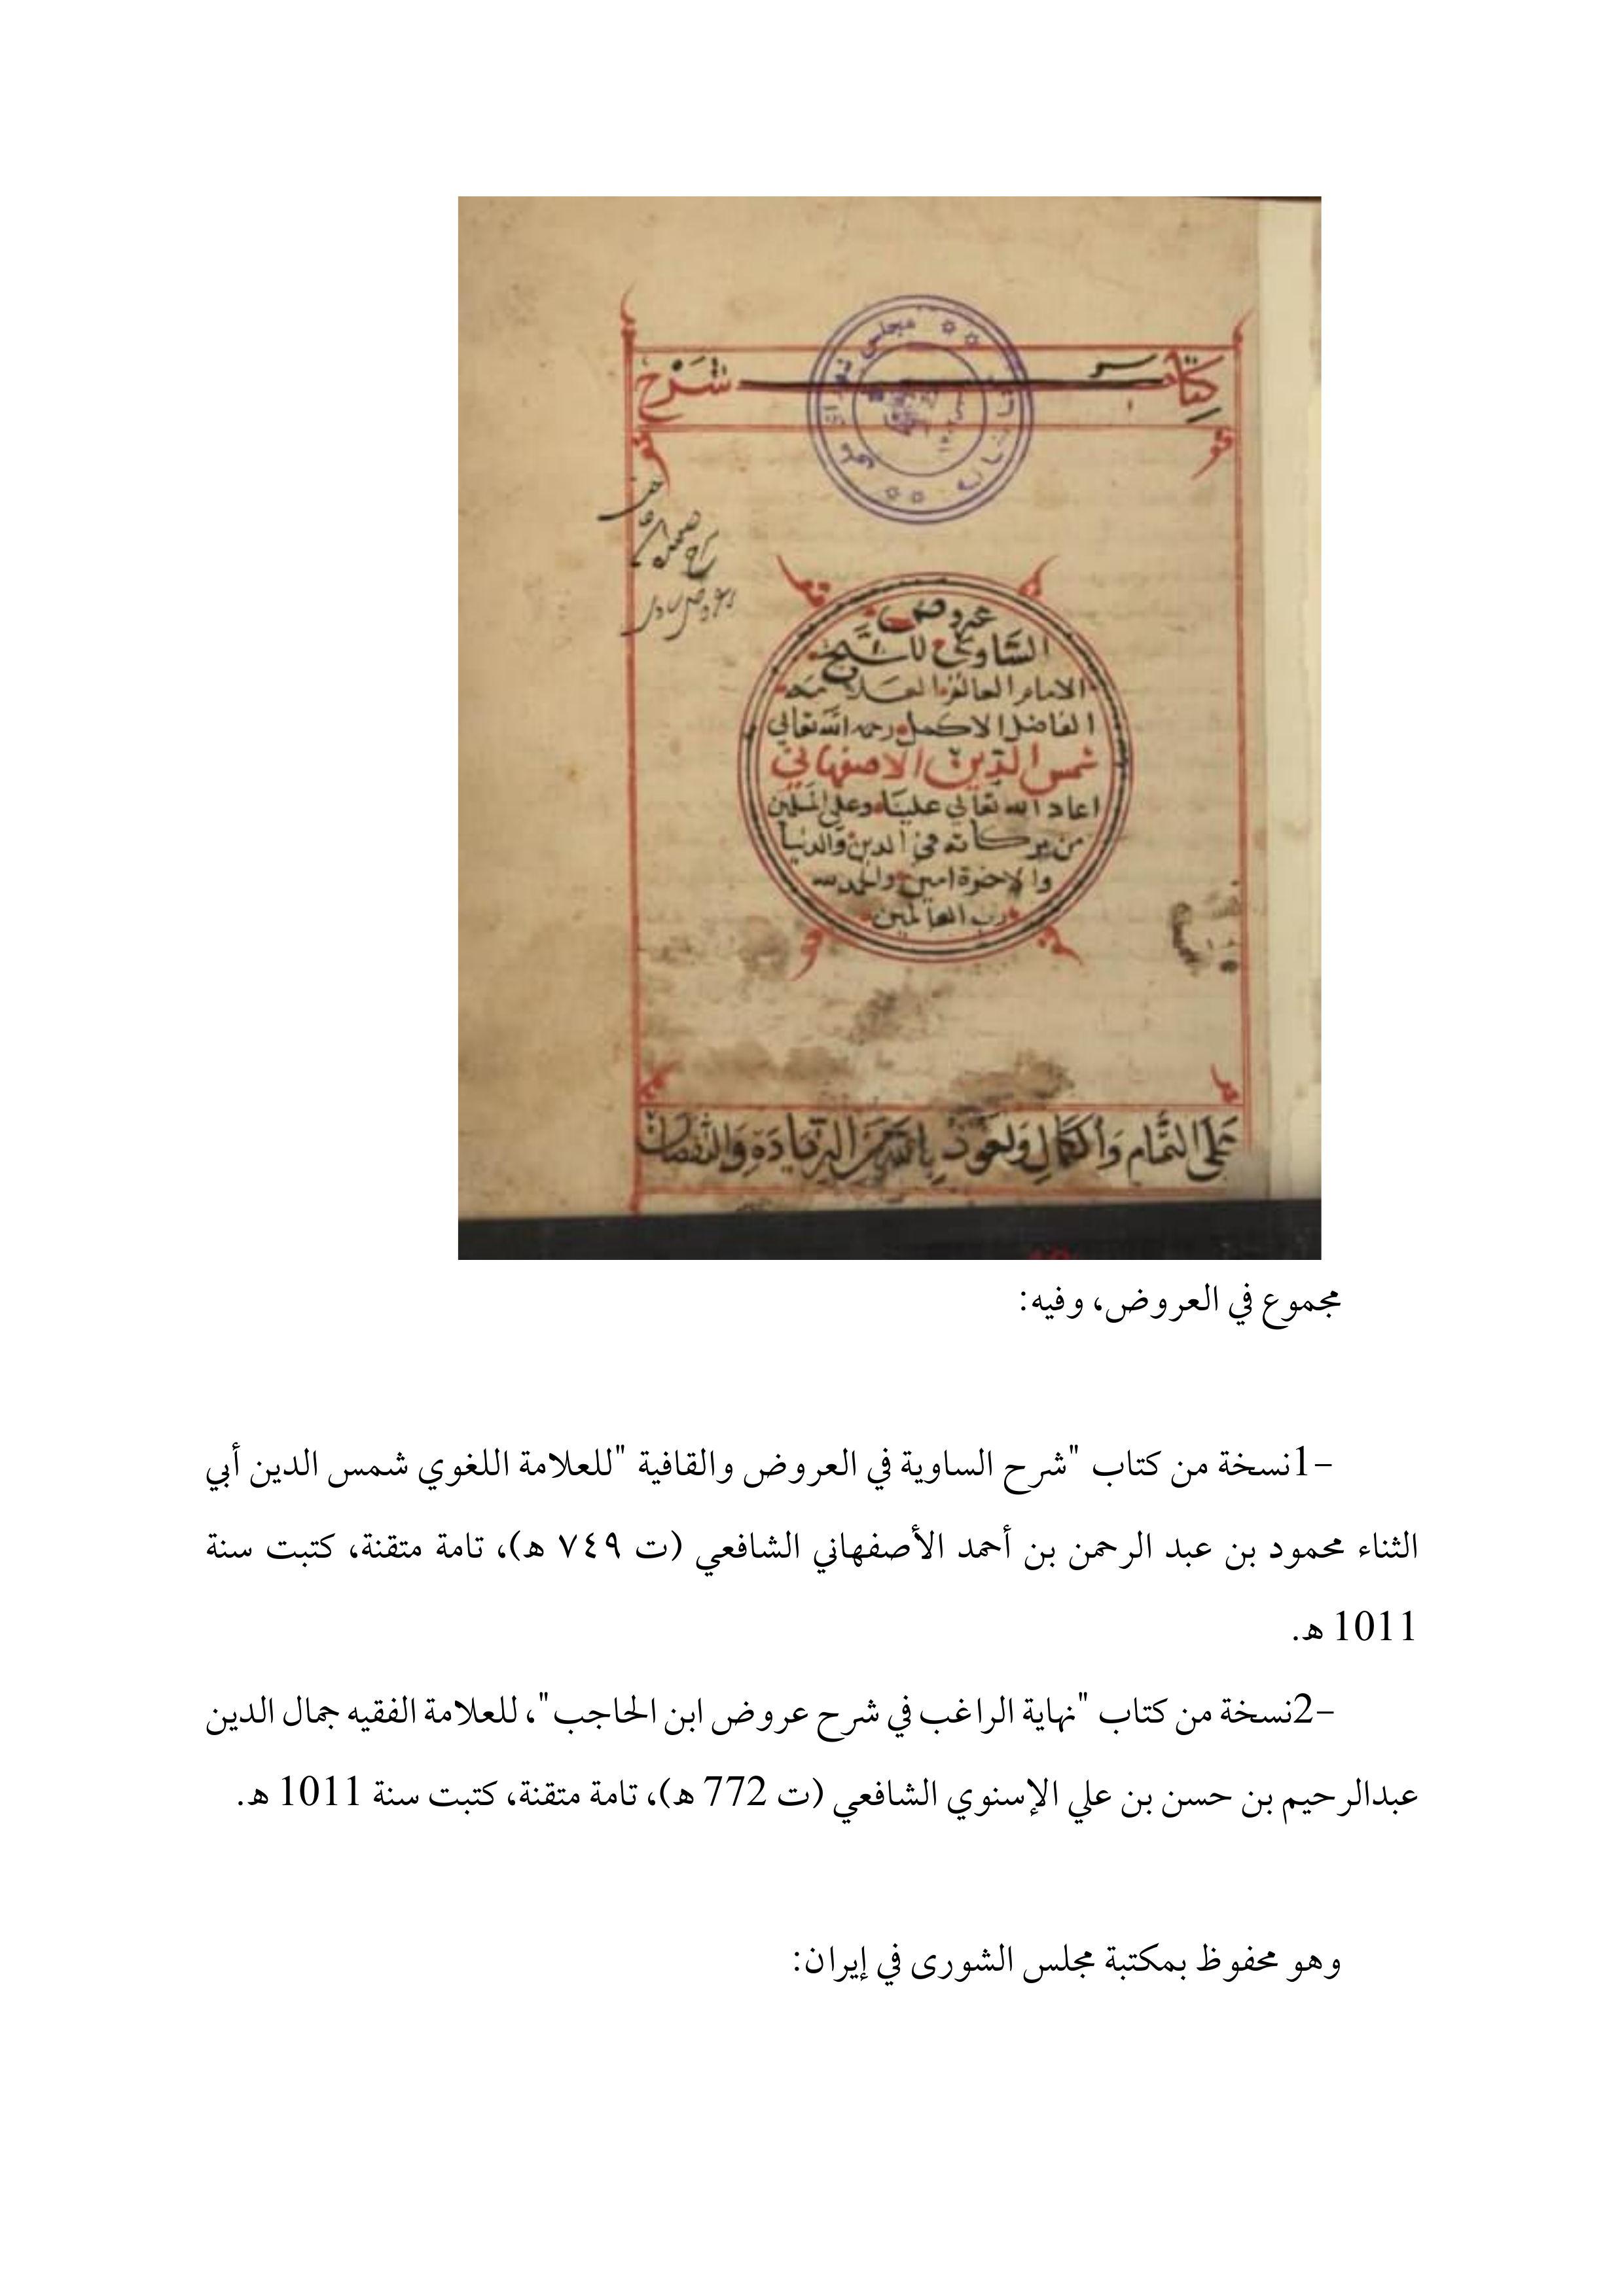 كتاب شرح
عروض
الشاوي للشيخ
الامام العالم العلامه
الفاضل الاكمل رحمه الله تعالى
شمس الدين الاصفهاني
اعاد الله تعالي علينا وعلى المسلمين
من بركاته في الدين والدنيا
والاخرة امين والحمد لله
رب العالمين
على التمام والكمال ونعوذ بالله من الزيادة والنقصان
مجموع في العروض، وفيه:
-1نسخة من كتاب "شرح الساوية في العروض والقافية "للعلامة اللغوي شمس الدين أبي
الثناء محمود بن عبد الرحمن بن أحمد الأصفهاني الشافعي (ت ٧٤٩ ه)، تامة متقنة، كتبت سنة
1011 ه.
-2نسخة من كتاب "نهاية الراغب في شرح عروض ابن الحاجب"، للعلامة الفقيه جمال الدين
عبدالرحيم بن حسن بن علي الإسنوي الشافعي (ت 772 ه)، تامة متقنة، كتبت سنة 1011 ه.
وهو محفوظ بمكتبة مجلس الشورى في إيران: